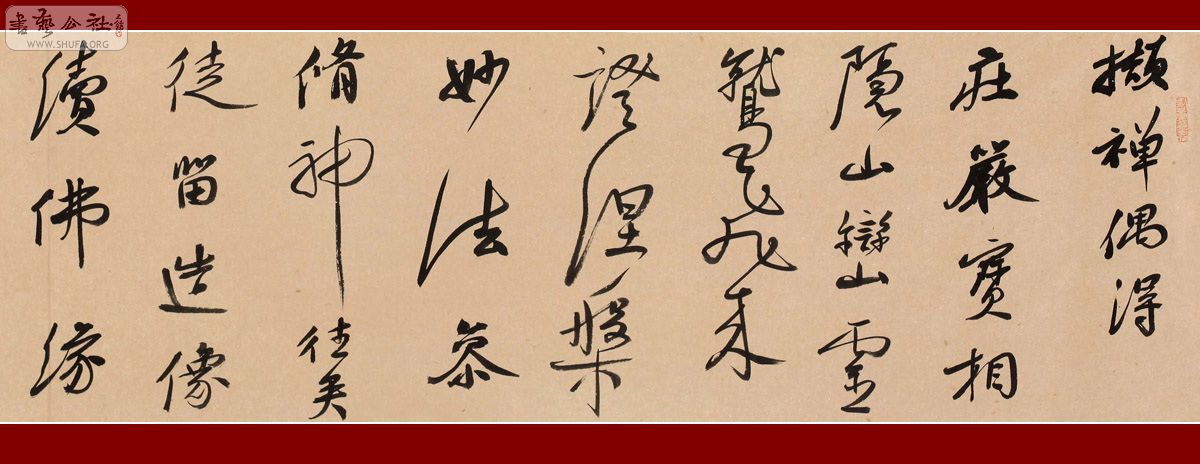 書藝公社
WWW.SHUFA.ORG
擷禅偶得
莊嚴寶相
隱山巒靈
鷲飛來
證涅槃
妙法慕
脩神往矣
徒留造像
續佛緣